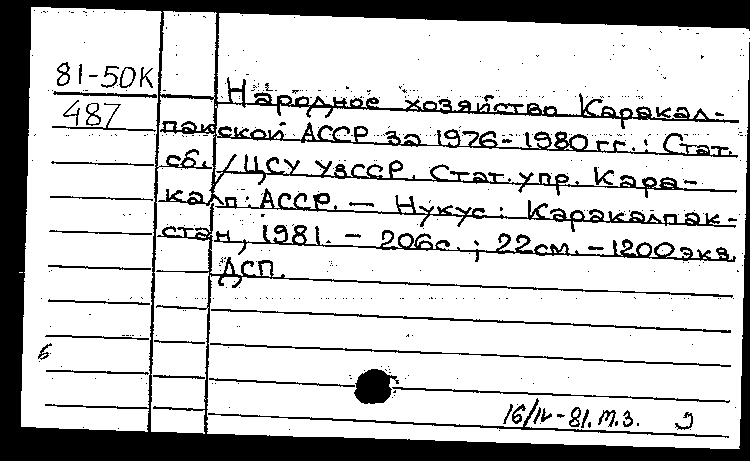 81-50К
487
Народное хозяйство Каракал-
пакской АССР за 1976-1980 гг.: Стат.
сб. / ЦСУ УзССР. Стат. упр. Кара-
калп. АССР. — Нукус: Каракалпак-
стан, 1981. - 206с.; 22см. - 1200 экз.
ДСП.
б
16/IV-81. М.З.